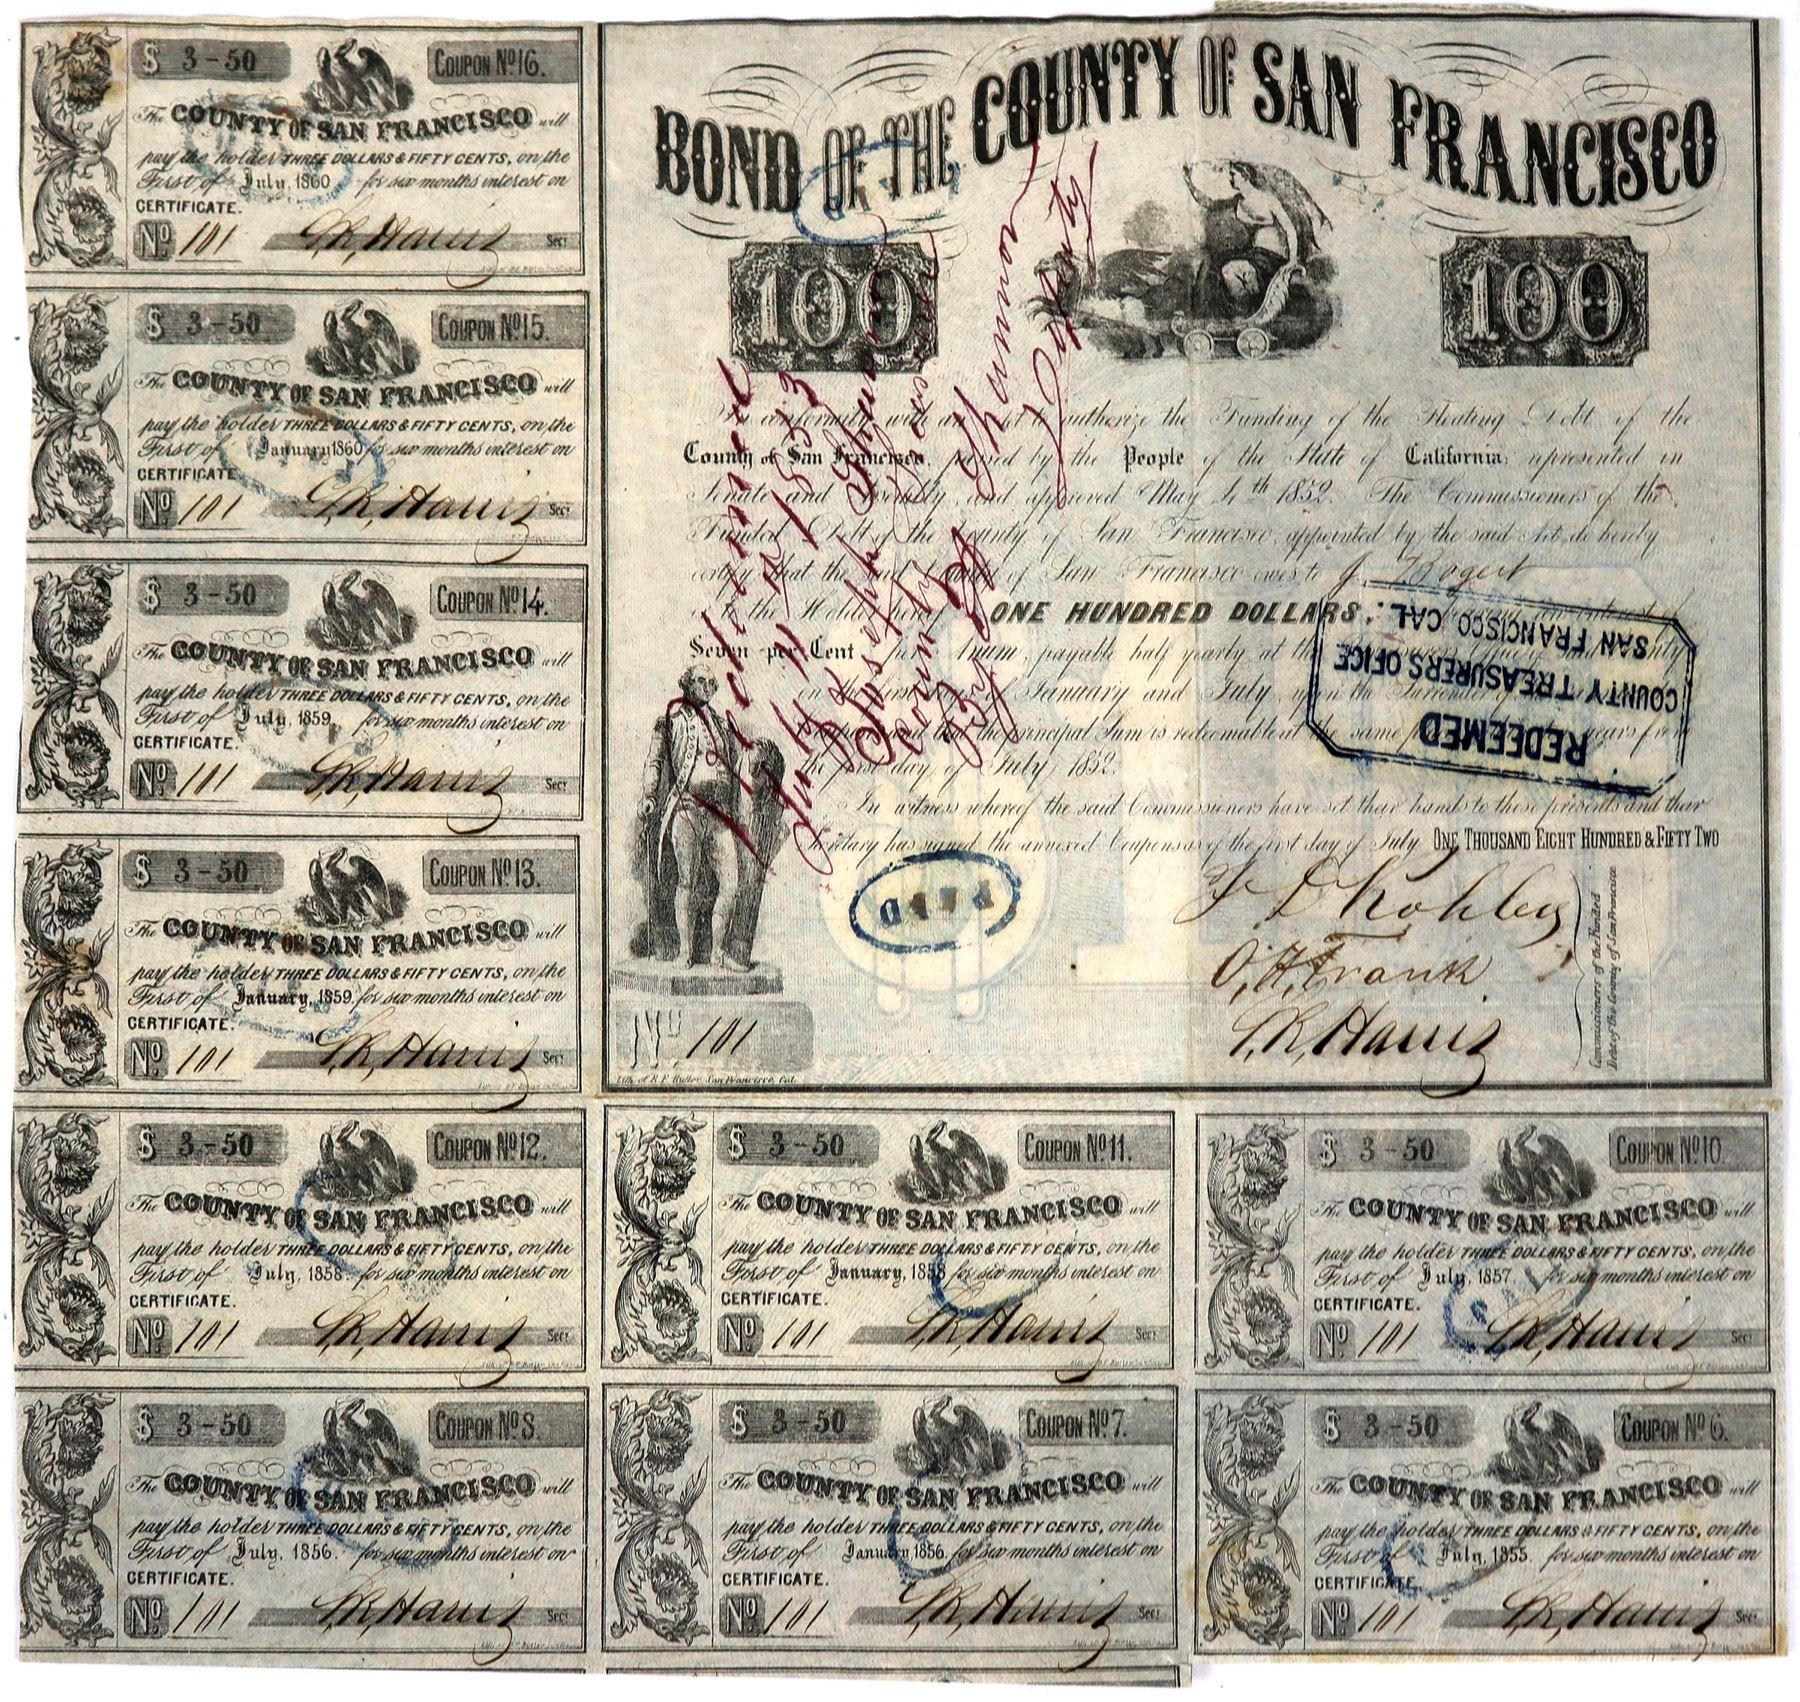 BOND OF THE COUNTY OF SAN FRANCISCO
100 100
In conformity with an Act to authorize the Funding of the Floating Debt of the
County of San Francisco, passed by the People of the State of California, represented in
Senate and Assembly, and approved May 4th 1852. The Commissioners of the
Funded Debt of the County of San Francisco, appointed by the said Act, do hereby
certify that the said County of San Francisco owes to J. Bogert
or to the Holder hereof ONE HUNDRED DOLLARS:
Seven per Cent per Annum, payable half yearly at the
on the first days of January and July, upon the Surrender
and that the principal Sum is redeemable at the same years from
the first day of July 1852.
In witness whereof the said Commissioners have set their hands to these presents and their
Secretary has signed the annexed Coupons as of the first day of July ONE THOUSAND EIGHT HUNDRED & FIFTY TWO
Redeemed
July 1853
Joseph Shannon
County Treasurer
By Shannon
Deputy
REDEEMED
COUNTY TREASURERS OFICE
SAN FRANCISCO CAL.
PAID
F D Kohler
O, H, Frank
S, R, Harris
Commissioners of the Funded
Debt of the County of San Francisco
No. 101
Lith. of B. F. Butler, San Francisco, Cal.
$ 3-50 COUPON No 16.
The COUNTY OF SAN FRANCISCO will
pay the holder THREE DOLLARS & FIFTY CENTS, on the
First of July, 1860 for six months interest on
CERTIFICATE.
No 101 S, R, Harris Secy
$ 3-50 COUPON No 15.
The COUNTY OF SAN FRANCISCO will
pay the holder THREE DOLLARS & FIFTY CENTS, on the
First of January 1860 for six months interest on
CERTIFICATE
No 101 S, R, Harris Secy
$ 3-50 COUPON No 14.
The COUNTY OF SAN FRANCISCO will
pay the holder THREE DOLLARS & FIFTY CENTS, on the
First of July, 1859. for six months interest on
CERTIFICATE.
No 101 S, R, Harris Secy
$ 3-50 COUPON No 13.
The COUNTY OF SAN FRANCISCO will
pay the holder THREE DOLLARS & FIFTY CENTS, on the
First of January, 1859. for six months interest on
CERTIFICATE.
No 101 S, R, Harris Secy
$ 3-50 COUPON No 12.
The COUNTY OF SAN FRANCISCO will
pay the holder THREE DOLLARS & FIFTY CENTS, on the
First of July, 1858. for six months interest on
CERTIFICATE.
No 101 S, R, Harris Secy
$ 3-50 COUPON No 11.
The COUNTY OF SAN FRANCISCO will
pay the holder THREE DOLLARS & FIFTY CENTS, on the
First of January, 1858 for six months interest on
CERTIFICATE.
No 101 S, R, Harris Secy
$ 3-50 COUPON No 10.
The COUNTY OF SAN FRANCISCO will
pay the holder THREE DOLLARS & FIFTY CENTS, on the
First of July, 1857. for six months interest on
CERTIFICATE.
No 101 S, R, Harris Secy
$ 3-50 COUPON No 8.
The COUNTY OF SAN FRANCISCO will
pay the holder THREE DOLLARS & FIFTY CENTS, on the
First of July, 1856. for six months interest on
CERTIFICATE.
No 101 S, R, Harris Secy
$ 3-50 COUPON No 7.
The COUNTY OF SAN FRANCISCO will
pay the holder THREE DOLLARS & FIFTY CENTS, on the
First of January 1856. for six months interest on
CERTIFICATE.
No 101 S, R, Harris Secy
$ 3-50 COUPON No 6.
The COUNTY OF SAN FRANCISCO will
pay the holder THREE DOLLARS & FIFTY CENTS, on the
First of July, 1855. for six months interest on
CERTIFICATE.
No 101 S, R, Harris Secy